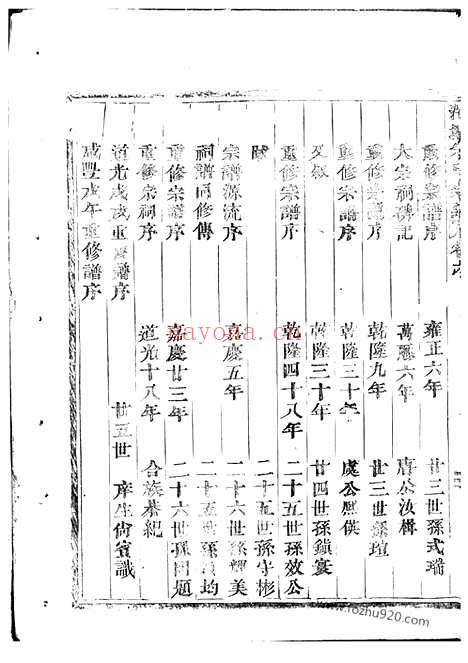 重修宗譜序 雍正六年 廿三世孫式瑞
大宗祠碑記 萬曆六年 唐公汝楫
重修宗譜序 乾隆九年 廿三世孫瑄
重修宗譜序 乾隆三十年 虞公際僕
又敘 乾隆三十年 廿四世孫鎮宴
重修宗譜序 乾隆四十八年 二十五世孫效公
跋 二十五世孫守彬
宗譜源流序 嘉慶五年 二十六世孫輝美
祠譜同修傳 二十五世孫 均
重修宗譜序 嘉慶廿三年 二十六世孫 題
重修宗祠序 道光十八年 合族恭紀
道光戊戌重修譜序 廿五世 庠生尚賓識
咸豐戊午年重修譜序
nayona.cn
www.rozhu920.com